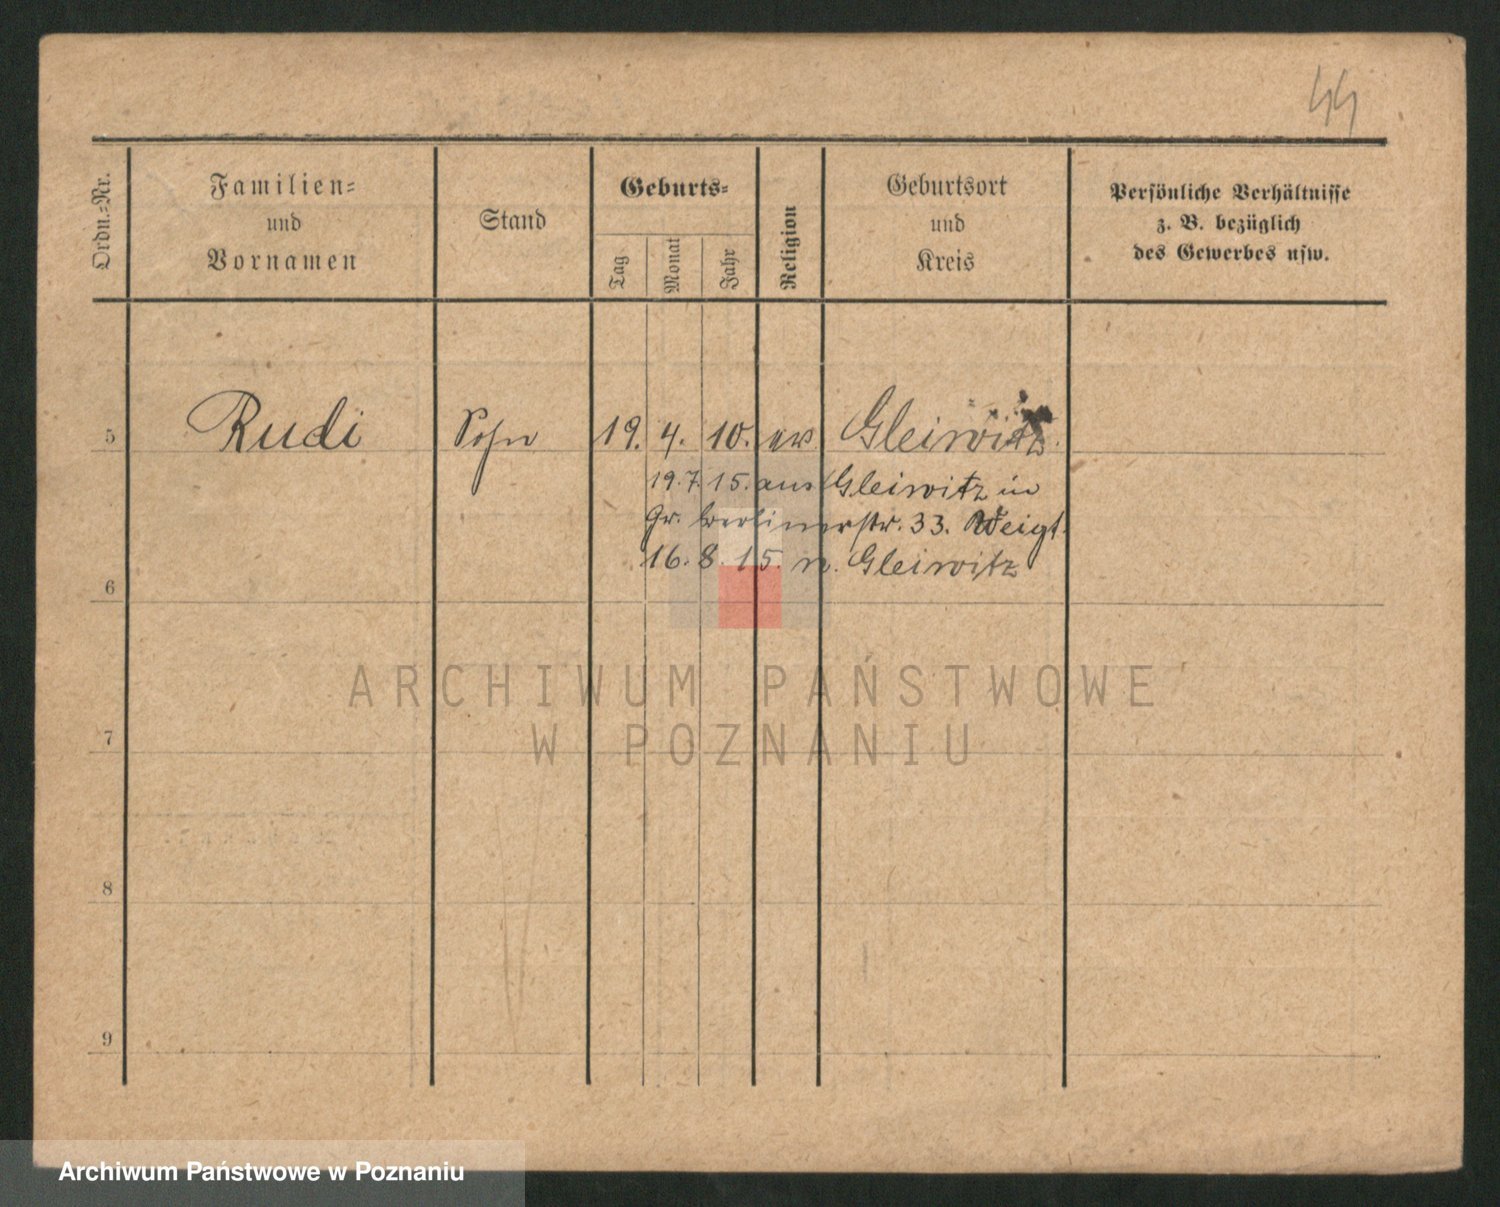 44
Ordn.-Nr.
Familien-
und
Vornamen
Stand
Geburts-
Tag
Monat
Jahr
Religion
Geburtsort
und
Kreis
Persönliche Verhältnisse
z. B. bezüglich
des Gewerbes usw.
5 Rudi Sohn 19. 4. 10. ev. Gleiwitz.
19. 7. 15. aus Gleiwitz in
Gr. Berlinerstr. 33. Weigt.
16. 8. 15. n. Gleiwitz
6
7
8
9
ARCHIWUM PAŃSTWOWE
W POZNANIU
Archiwum Państwowe w Poznaniu